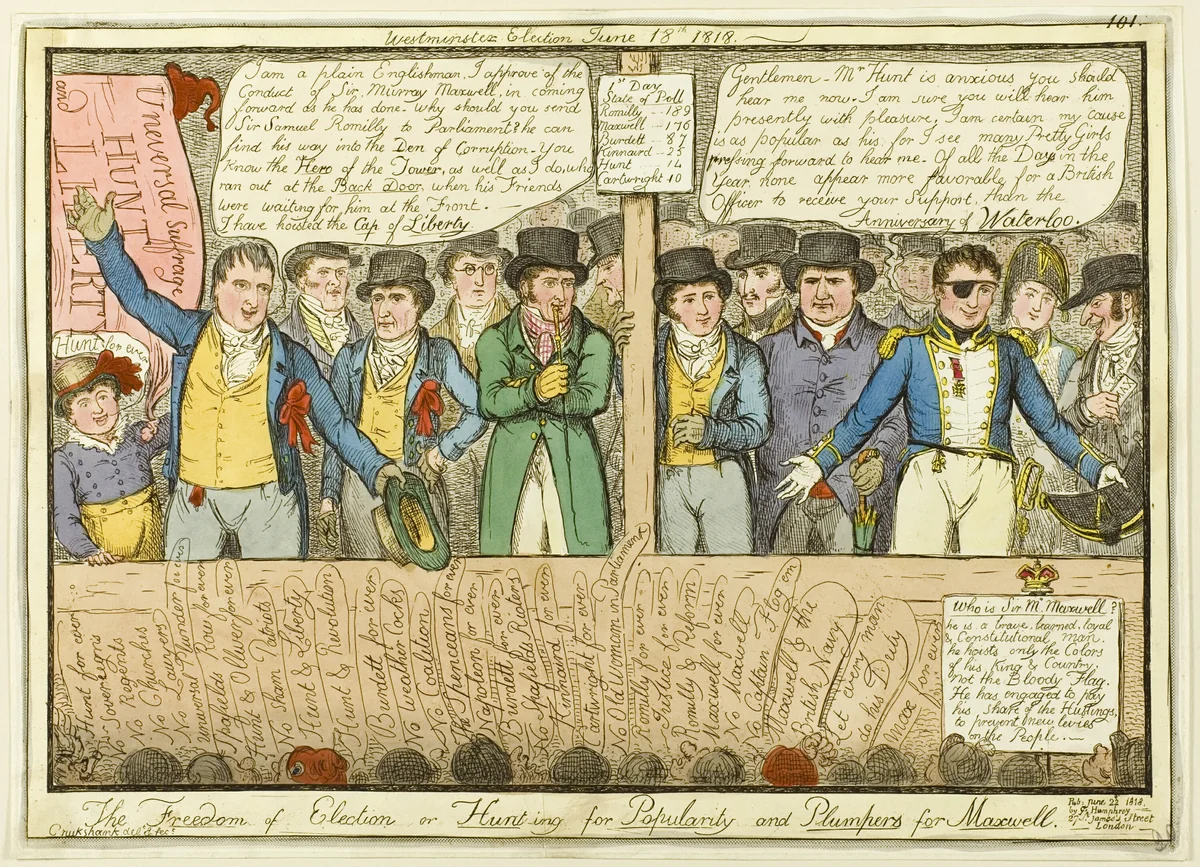 101.
Westminster Election June 18th 1818.
I am a plain Englishman, I approve of the
Conduct of Sir Murray Maxwell, in coming
forward as he has done - why should you send
Sir Samuel Romilly to Parliament? he can
find his way into the Den of Corruption - you
Know the Hero of the Tower, as well as I do, who
ran out at the Back Door when his Friends
were waiting for him at the Front.
I have hoisted the Cap of Liberty
1st Day
State of Poll
Romilly --- 189
Maxwell --- 176
Burdett --- 87
Kinnaird --- 25
Hunt --- 14
Cartwright 10
Gentlemen - Mr Hunt is anxious you should
hear me now. I am sure you will hear him
presently with pleasure, I am certain my cause
is as popular as his, for I see many Pretty Girls
pressing forward to hear me. Of all the Days in the
Year, none appear more favorable, for a British
Officer to receive your Support, than the
Anniversary of Waterloo.
Universal Suffrage
HUNT
and
LIBERTY
Hunt for ever
Hunt for ever
No Sovereigns
No Regents
No Churches
No Lawyers
No Laws Plunder for ever
Universal Roar for ever
Watson & Oliver for ever
Hunt than Patriots
Hunt & Liberty
Hunt & Revolution
Burdett for ever
No Weather Cocks
No Coalition
The Spenceans for ever
No Phaeton for ever
Burdett for ever
No Skaffolds Riders
Kinnaird for ever
Cartwright for ever
No Old Woman in Parliament
Romilly for ever
Justice for ever
Romilly & Reform
Maxwell for ever
No Maxwell
No Captain Flog em
Maxwell & the
British Navy
Let every man
do his Duty
Max for ever
Who is Sir M. Maxwell?
he is a brave, learned, loyal
& Constitutional man.
he hoists only the Colors
of his King & Country,
not the Bloody Flag.
He has engaged to pay
his share of the Hustings,
to prevent new levies
on the People.
The Freedom of Election or Hunt-ing for Popularity and Plumpers for Maxwell.
Cruikshank del. et fect.
Pub. June 22 1818,
by G. Humphrey
27 St. James's Street
London